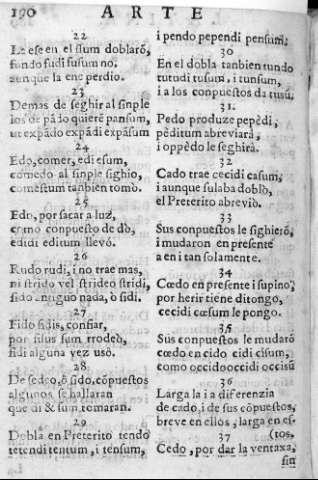 190 ARTE
22
La ese en el ssum doblarõ,
fundo fudi fusum no.
aunque la ene perdio.
23
Demas de seghir al sinple
los de pãdo quierẽ pansum,
ut expãdo expãdi expãsum
24
Edo, comer, edi esum,
comedo al sinple sighio,
comestum tanbien tomò.
25
Edo, por sacar a luz,
como conpuesto de dò,
edidi editum llevó.
26
Rudo rudi, i no trae mas,
ni strido vel strideo stridi,
sido antiguo nada, ò sidi.
27
Fido fidis, confiar,
por fisus sum
fidi alguna vez usò.
28
De sedeo, ò sido, cõpuestos
algunos se hallaran
que di & sum tomaran.
29
Dobla en Preterito tendo
tetendi tentum, i tensum,
i pendo pependi pensum;
30
En el dobla tanbien tundo
tutudi tusum, i tunsum,
i a los conpuestos da tusũ,
31.
Pedo produze pepèdi,
pèditum abreviarà,
i oppèdo le seghirà.
32
Cado trae cecidi casum;
i aunque sulaba doblò,
el Preterito abreviò.
33
Sus conpuestos le sighierõ,
i mudaron en presente
a en i tan solamente.
34
Cœdo en presente i supino,
por herir tiene ditongo,
cecidi cœsum le pongo.
35
Sus conpuestos le mudarõ
cœdo en cido cidi cisum,
como occido occidi occisũ
36
Larga la i a diferenzia
de cado, i de sus cõpuestos,
breve en ellos, larga en es-
37 (tos,
Cedo, por dar la ventaxa,
sin